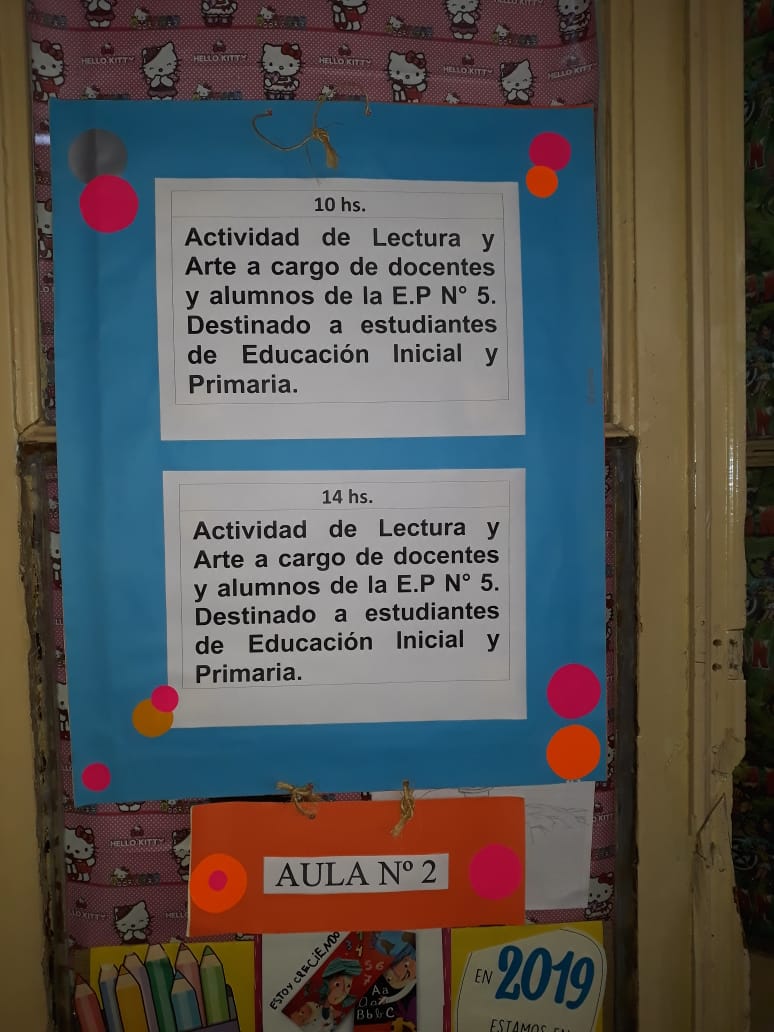 HELLO KITTY HELLO KITTY HELLO KITTY HELLO KITTY HELLO KITTY
10 hs.
Actividad de Lectura y
Arte a cargo de docentes
y alumnos de la E.P N° 5.
Destinado a estudiantes
de Educación Inicial y
Primaria.
14 hs.
Actividad de Lectura y
Arte a cargo de docentes
y alumnos de la E.P N° 5.
Destinado a estudiantes
de Educación Inicial y
Primaria.
AULA Nº 2
HELLO KITTY
ESTOY CRECIENDO
Aa
Bb C
EN 2019
ESTAMOS EN